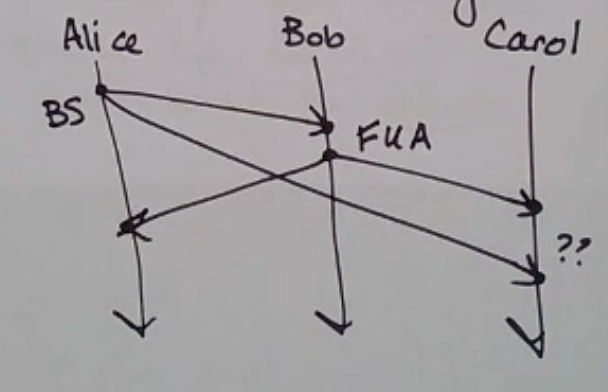 Alice Bob Carol
BS
FUA
??